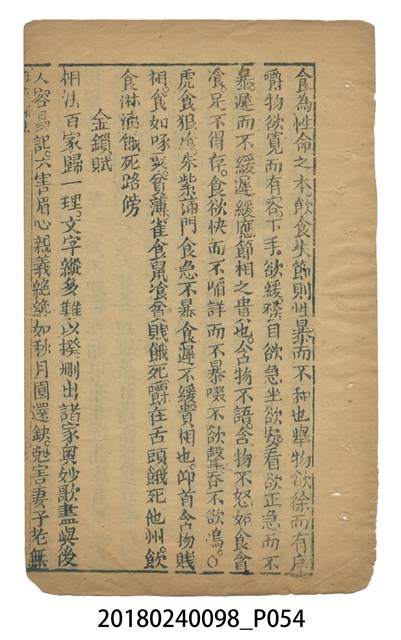 食為性命之本飲食失節則性暴而不和也舉物欲徐而有序
嚼物欲寬而有容下手欲緩發口欲急坐欲安看欲正急而不
暴遲而不緩遲緩應節相之貴也含物不語含物不怒如食倉
食足不得存食欲快而不嗔詳而不暴啜不欲聲吞不欲鳴〇
虎食狼食朱紫滿門食急不暴食遲不緩貴相也仰首含物賤
相食如啄貧薄雀食鼠食貧賤餓死嚼在舌頭餓死他州飲
食淋漓餓死路傍
金鎖賦
相法百家歸一理文字縱多難以揆刪出諸家奧妙歌盡與後
人容易記六害眉心親義絕纔如秋月圓還缺尅害妻子老無
20180240098_P054